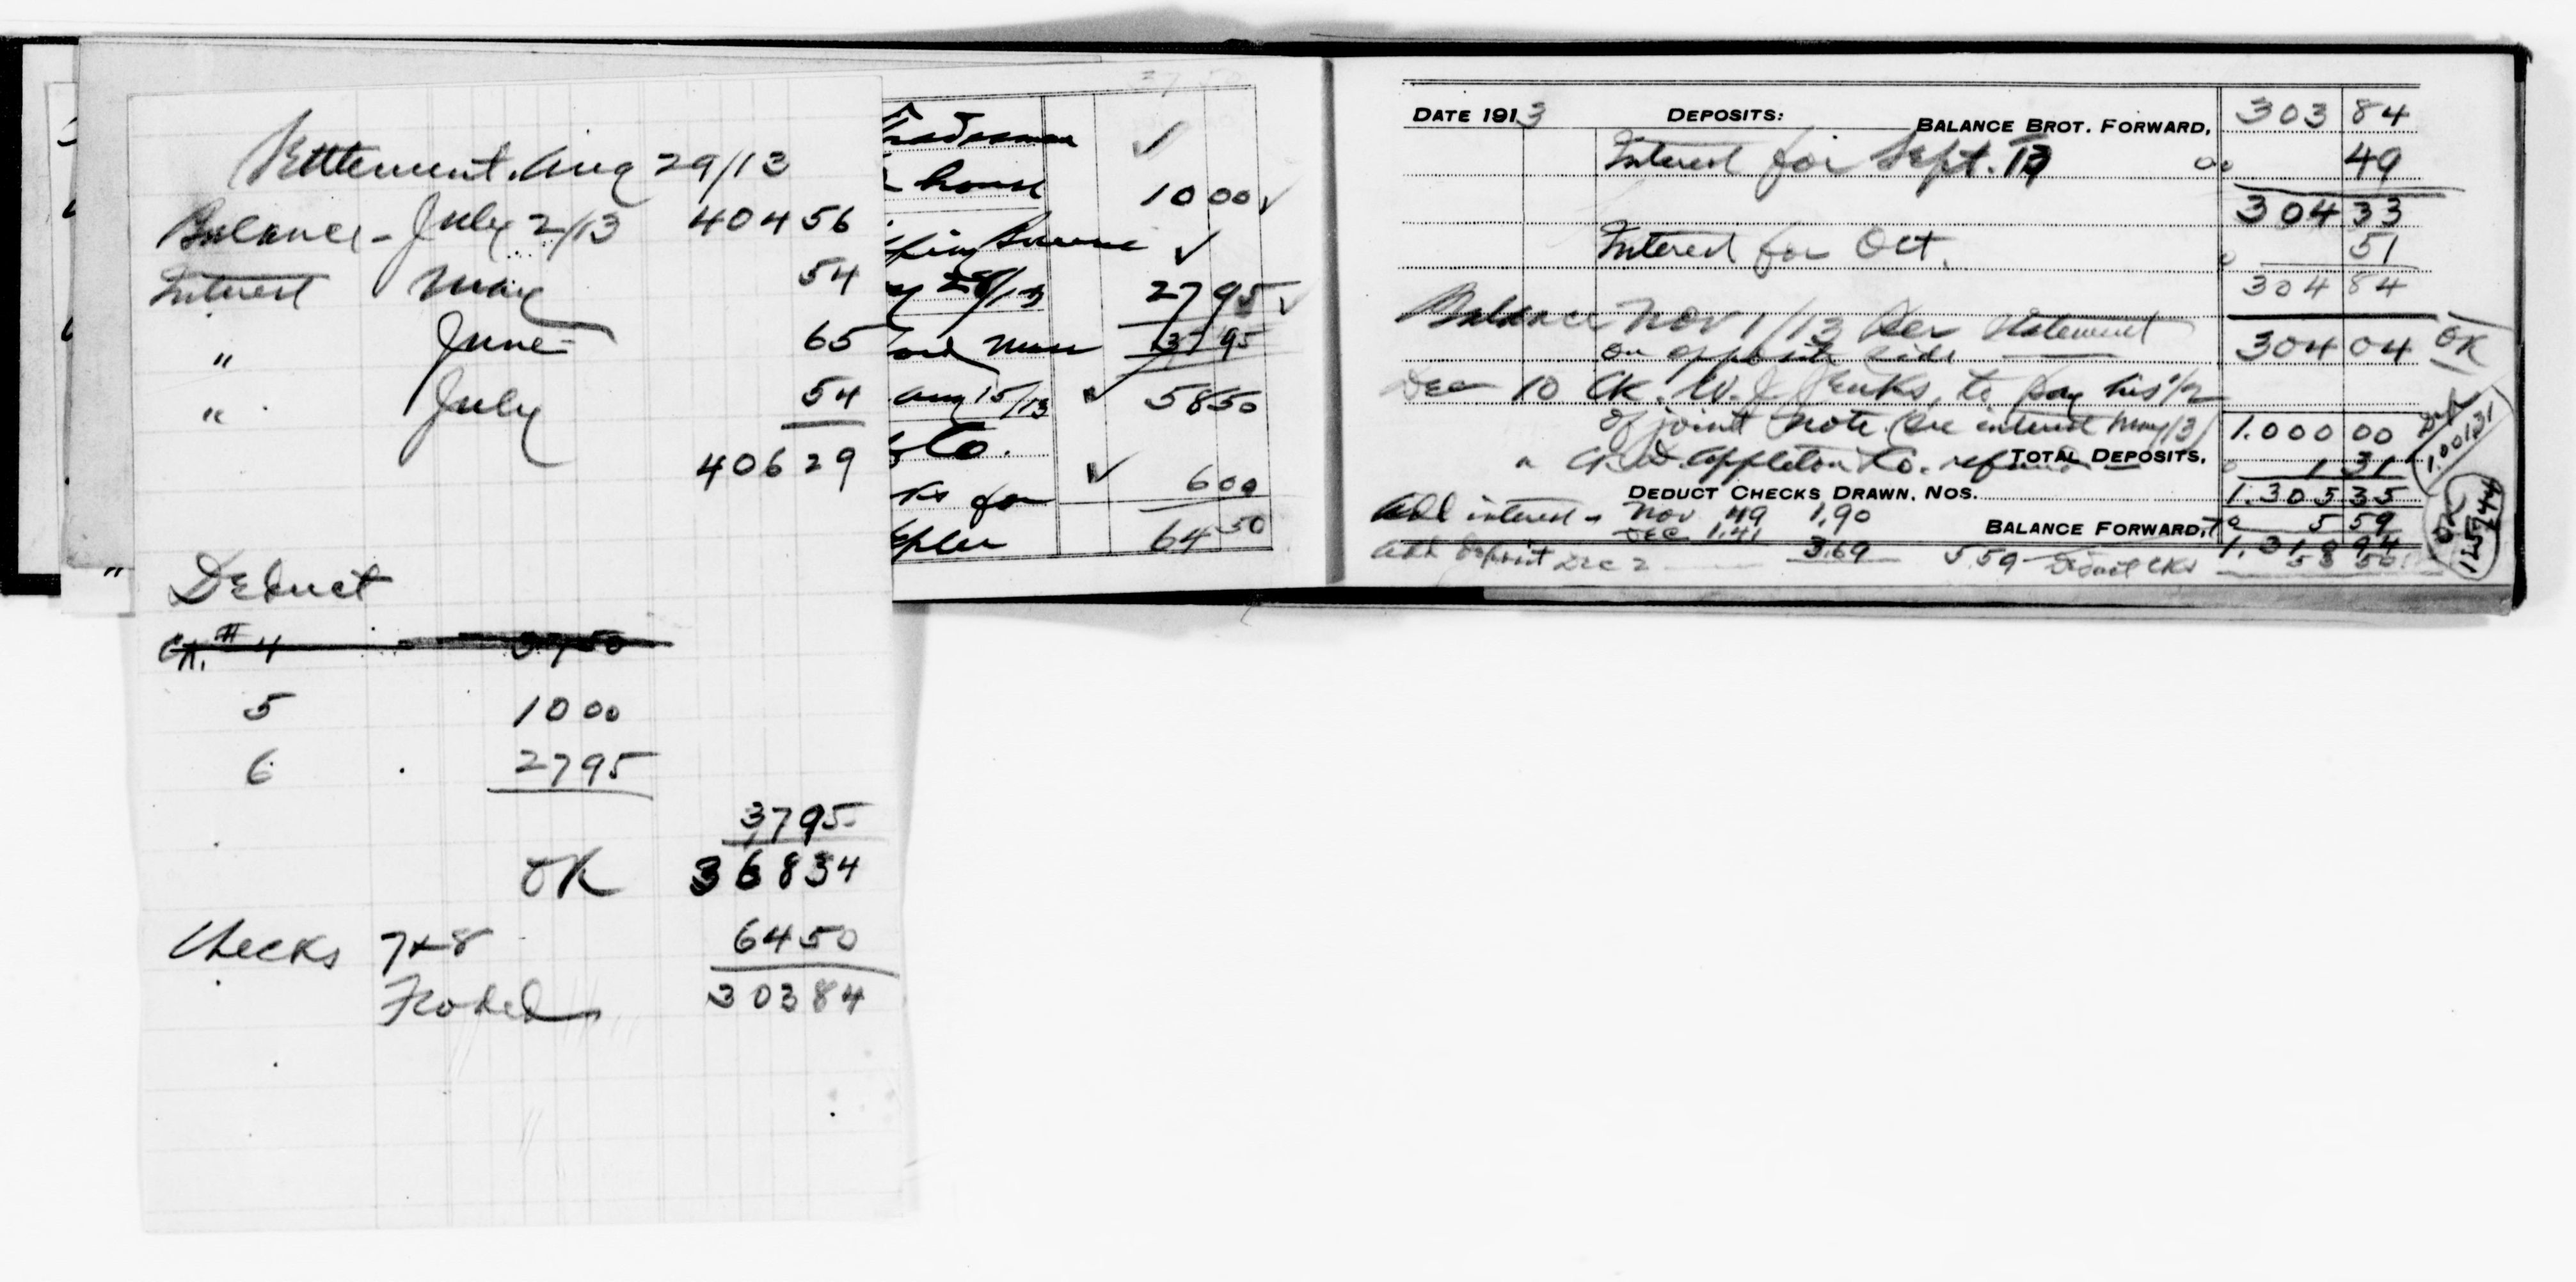 Settlement. Aug 29/13
Balance - July 2/13 404 56
Interest May 54
" June 65
" July 54
406 29
Deduct
Ck. #4 37 50
5 10 00
6 27 95
37 95
OK 368 34
Checks 7 & 8 64 50
303 84
"
37 50
Tradesman ✓
house 10 00 ✓
✓
28/13 27 95 ✓
37 95
Aug 15/13 ✓ 58 50
Co.
for ✓ 6 00
64 50
DATE 1913 DEPOSITS: BALANCE BROT. FORWARD, 303 84
Interest for Sept. 13 49
304 33
Interest for Oct. 51
304 84
Balance Nov 1/13 Per Statement
on opposite side 304 04 OK
Dec 10 Ck. W. J. Jenks, to pay his 1/2
of joint note (see interest May/13) 1.000 00 Dep 1.001 31
" Appleton Co. refund TOTAL DEPOSITS, 1 31
DEDUCT CHECKS DRAWN, NOS. 1.305 35
Add interest - Nov 49 1.90 BALANCE FORWARD, 5 59
Dec 1.41
Add deposit Dec 2 3.69 5.59 Deduct cks 1.310 94
58 50
OK 1252 44